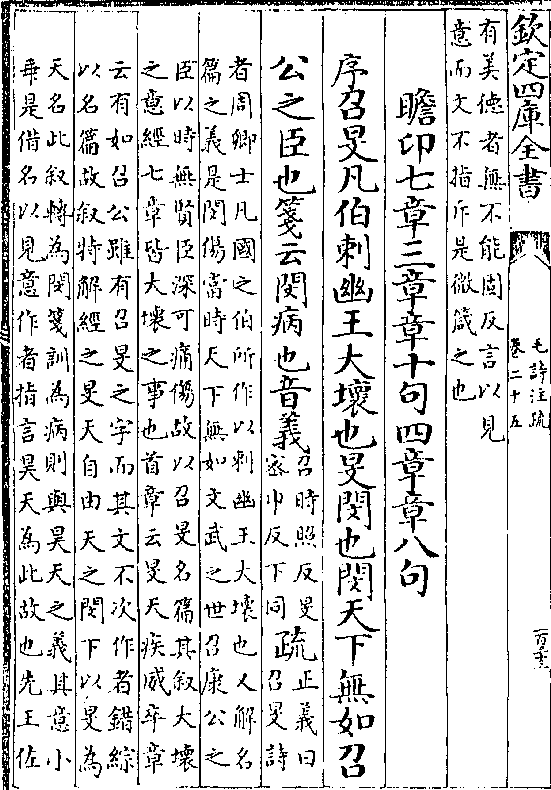 欽定四庫全書
毛詩注疏
卷二十五
有美德者無不能固反言以見
意而文不指斥是微箴之也
瞻卬七章三章章十句四章章八句
序召旻凡伯刺幽王大壞也旻閔也閔天下無如召
公之臣也箋云閔病也音義
召時照反旻
密巾反下同
疏
正義曰
召旻詩
者周卿士凡國之伯所作以刺幽王大壞也人解名
篇之義是閔傷當時天下無如文武之世召康公之
臣以時無賢臣深可痛傷故以召旻名篇其叙大壞
之意經七章皆大壞之事也首章云旻天疾威卒章
云有如召公雖有召旻之字而其文不次作者錯綜
以名篇故叙特解經之旻天自由天之閔下以旻為
天名此叙轉為閔箋訓為病則與昊天之義其意小
乖是借名以見意作者指言昊天為此故也先王佐